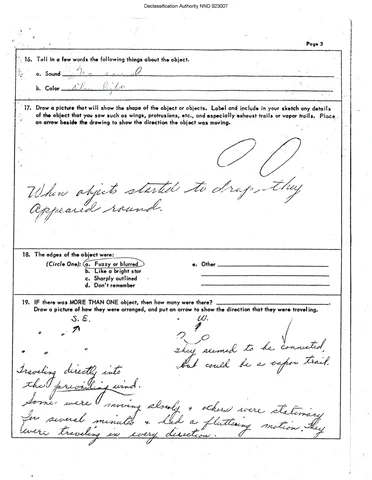 Declassification Authority NND 923007
Page 3
16. Tell in a few words the following things about the object.
a. Sound No sound
b. Color
17. Draw a picture that will show the shape of the object or objects. Label and include in your sketch any details
of the object that you saw such as wings, protrusions, etc., and especially exhaust trails or vapor trails. Place
an arrow beside the drawing to show the direction the object was moving.
When object started to drop, they
Appeared round.
18. The edges of the object were:
(Circle One): a. Fuzzy or blurred e. Other
b. Like a bright star
c. Sharply outlined
d. Don't remember
19. IF there was MORE THAN ONE object, then how many were there?
Draw a picture of how they were arranged, and put an arrow to show the direction that they were traveling.
S.E. W.
They seemed to be connected
but could be a vapor trail.
Traveling directly into
the prevailing wind.
Some were moving slowly + others were stationary
for several minutes + had a fluttering motion. They
were traveling in every direction.